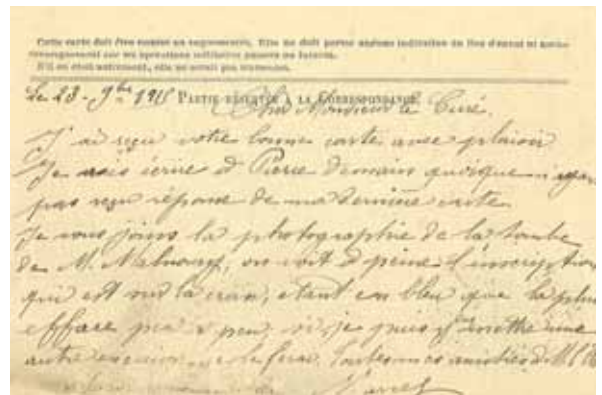 Cette carte doit être remise au vaguemestre. Elle ne doit porter aucune indication du lieu d'envoi ni aucun
renseignement sur les opérations militaires passées ou futures.
S'il en était autrement, elle ne serait pas transmise.
Le 23-9bre 1915 PARTIE RÉSERVÉE A LA CORRESPONDANCE
Cher Monsieur le Curé.
J'ai reçu votre bonne carte avec plaisir
Je vais écrire à Pierre demain quoique n'ayant
pas reçu réponse de ma dernière carte
Je vous joins la photographie de la tombe
de M. on voit à peine l'inscription
qui est sur la croix, étant en bleu que la pluie
efface peu à peu, si je puis y mettre une
autre je le ferai. Toutes mes amitiés à M.